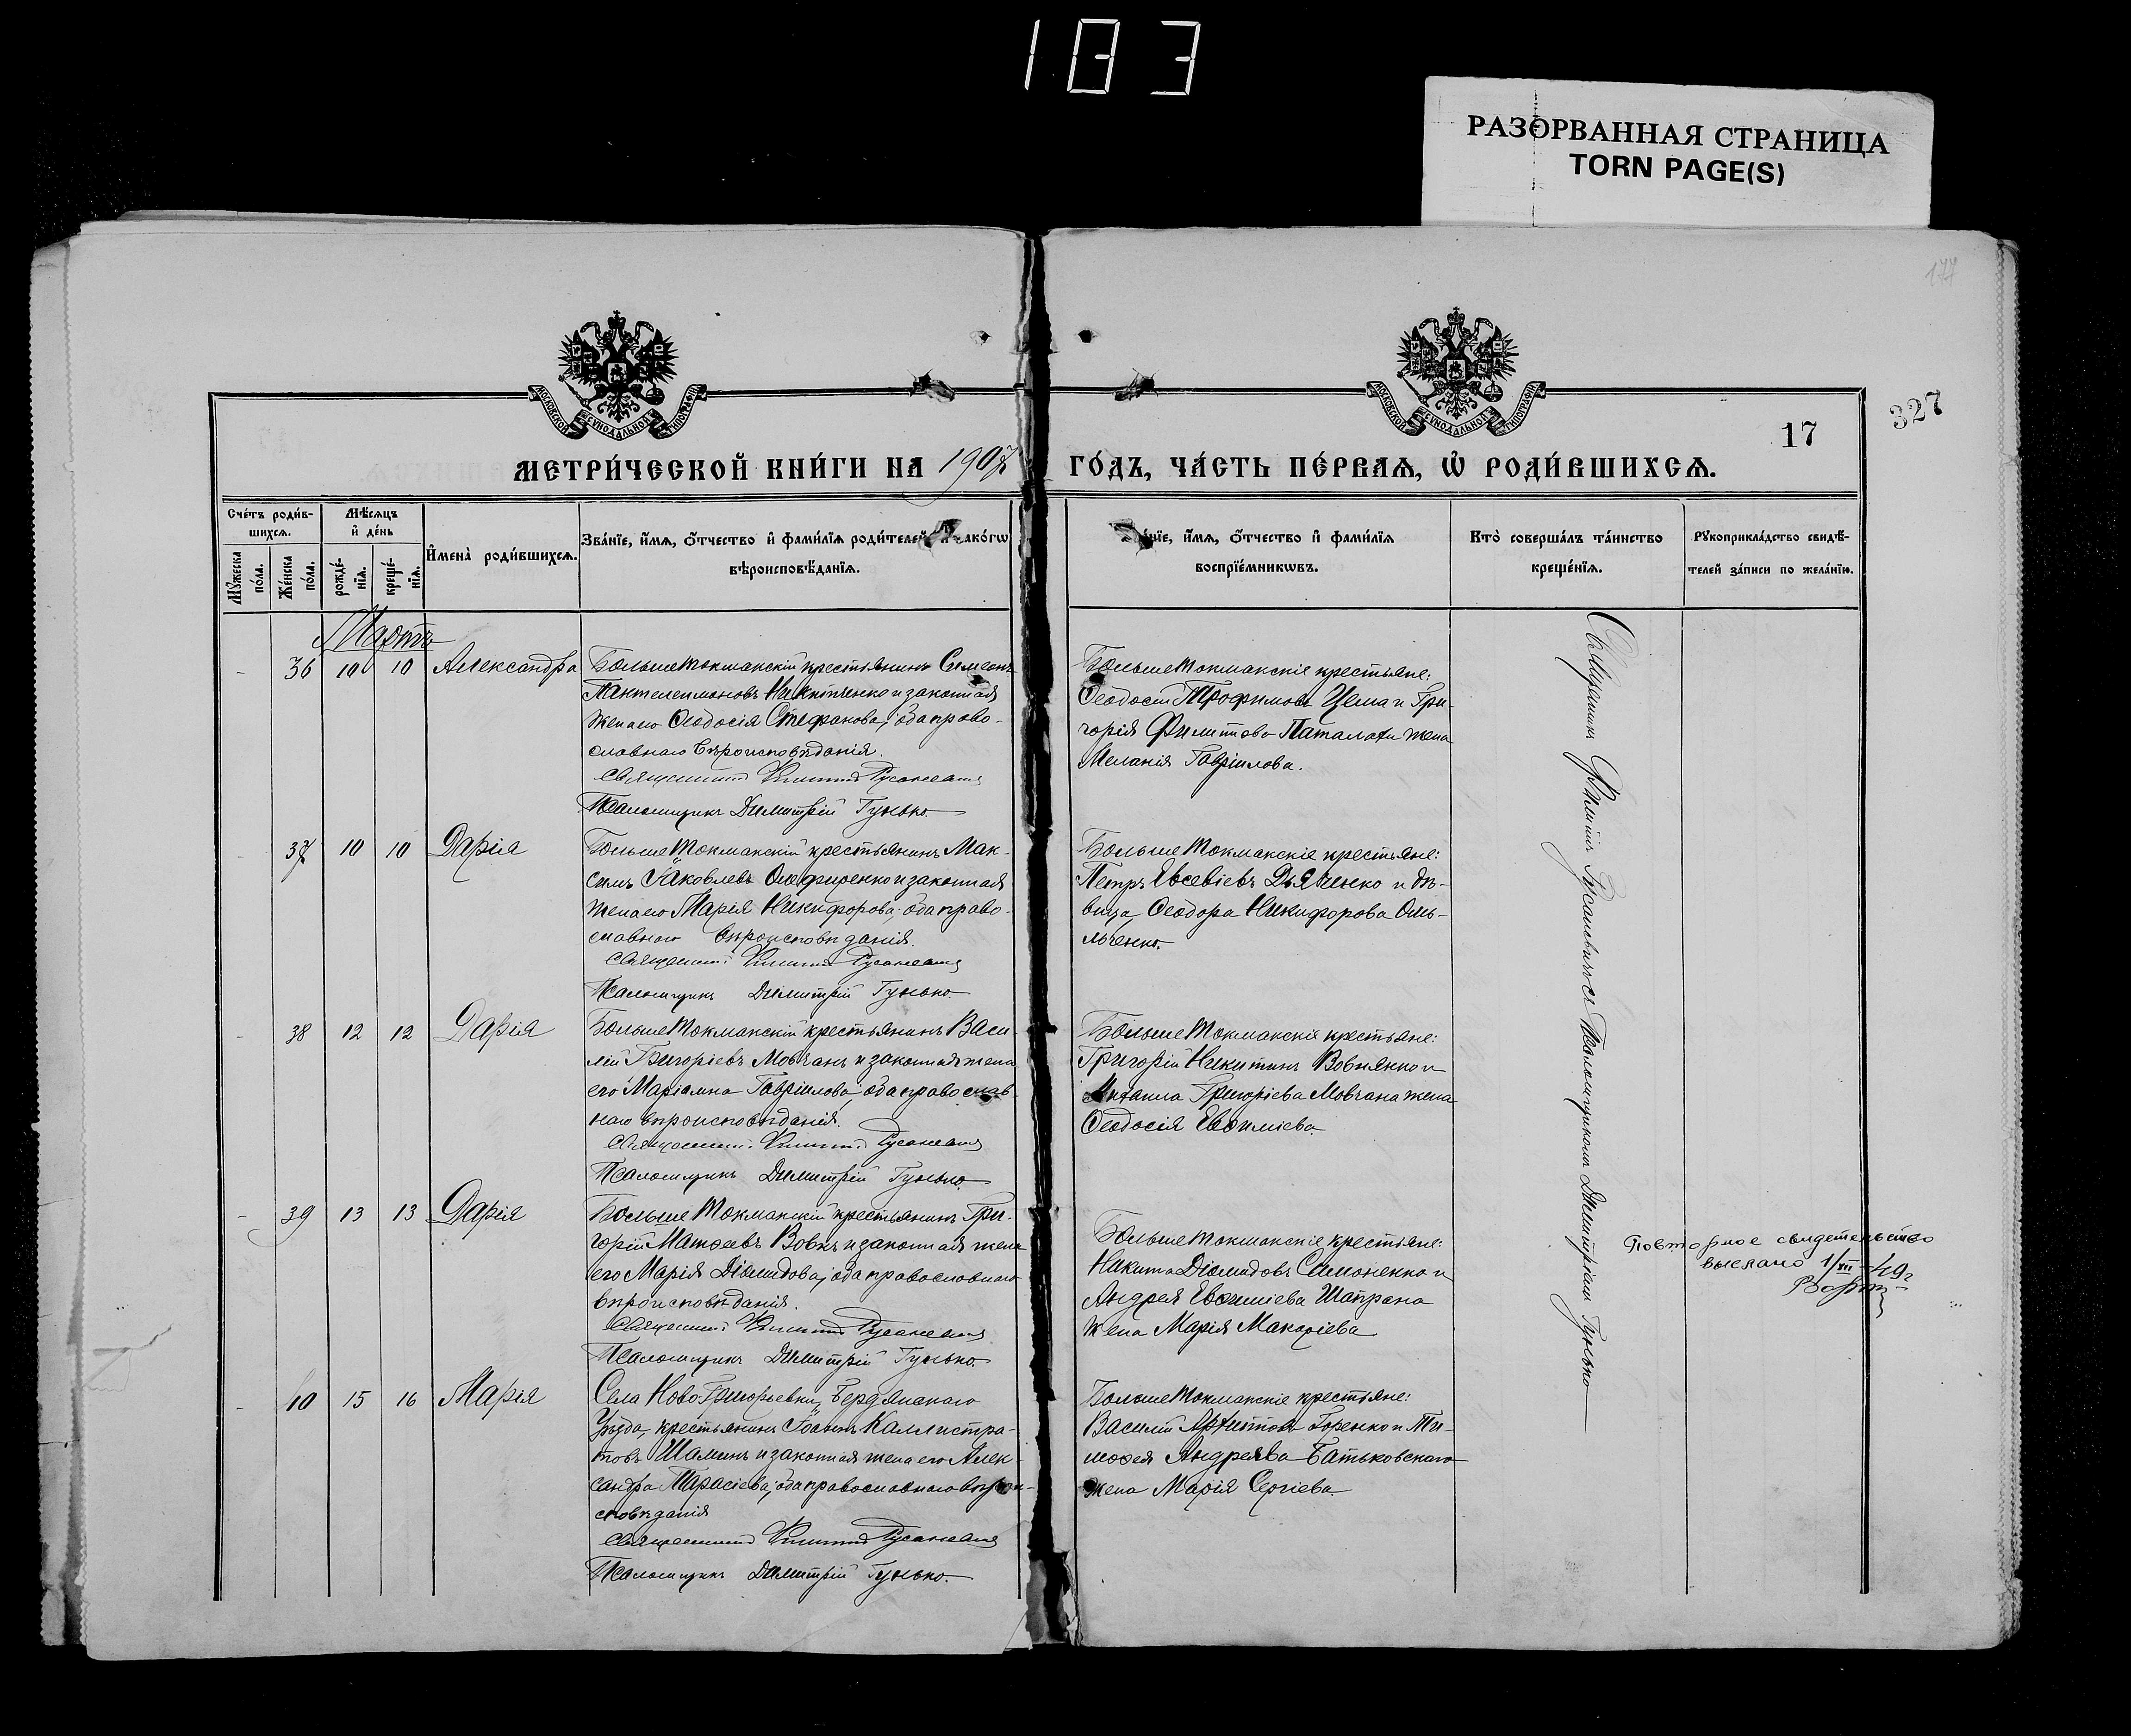 183
РАЗОРВАННАЯ СТРАНИЦА
TORN PAGE(S)
177
327
17
МОСКОВСКОЙ СѴНОДАЛЬНОЙ ТИПОГРАФІИ
МОСКОВСКОЙ СѴНОДАЛЬНОЙ ТИПОГРАФІИ
МЕТРИ́ЧЕСКОЙ КНИ́ГИ НА 1907 ГО́ДЪ, ЧА́СТЬ ПЕ́РВАѦ, Ѡ҆ РОДИ́ВШИХСѦ.
Сче́тъ роди́в-
шихсѧ.
Мꙋ́жеска по́ла.
Же́нска по́ла.
Мѣ́сѧцъ
и҆ де́нь
рожде́-
нїѧ.
креще́-
нїѧ.
И҆мена̀ роди́вшихсѧ.
Зва́нїе, и҆́мѧ, ѻ҆́тчество и҆ фами́лїѧ роди́телей и҆ како́гѡ
вѣроисповѣ́данїѧ.
и҆́мѧ, ѻ҆́тчество и҆ фами́лїѧ
воспрїе́мникѡвъ.
Кто̀ соверша́лъ та́инство
креще́нїѧ.
Рꙋкоприкла́дство свидѣ́-
телей за́писи по жела́нїю.
Мартъ
- 36 10 10 Александра
БольшеТокмакскій крестьянинъ Симеонъ
Пантелеимоновъ Никитченко и законная
жена его Ѳеодосія Стефанова; оба право-
славнаго вѣроисповѣданія.
Священникъ
Псаломщикъ Димитрій Гунько.
БольшеТокмакскіе крестьяне:
Ѳеодосій Трофимовъ Цема и Гри-
горія Филиппова Паталахи жена
Меланія Гавріилова.
- 37 10 10 Дарія
БольшеТокмакскій крестьянинъ Мак-
симъ Іаковлевъ Олефиренко и законная
жена его Марія Никифорова; оба право-
славнаго вѣроисповѣданія.
Священникъ
Псаломщикъ Димитрій Гунько.
БольшеТокмакскіе крестьяне:
Петръ Евсевіевъ Дьяченко и дѣ-
вица Ѳеодора Никифорова Оме-
льченко.
- 38 12 12 Дарія
БольшеТокмакскій крестьянинъ Васи-
лій Григоріевъ Мовчанъ и законная жена
его Маріамна Гавріилова; оба православ-
наго вѣроисповѣданія.
Священникъ
Псаломщикъ Димитрій Гунько.
БольшеТокмакскіе крестьяне:
Григорій Никитинъ Вовнянко и
Михаила Григоріева Мовчана жена
Ѳеодосія Евѳиміева.
- 39 13 13 Дарія
БольшеТокмакскій крестьянинъ Гри-
горій Матѳеевъ Вовкъ и законная жена
его Марія Діомидова; оба православнаго
вѣроисповѣданія.
Священникъ
Псаломщикъ Димитрій Гунько.
БольшеТокмакскіе крестьяне:
Никита Діомидовъ Симоненко и
Андрея Евѳиміева Шапрана
жена Марія Макаріева
Повторное свидетельство
выслано 1/XII-49г
- 40 15 16 Марія
Села Ново-Григорьевки, Бердянскаго
уѣзда, крестьянинъ Іоаннъ Каллистра-
товъ Шаминъ и законная жена его Алек-
сандра Тарасіева; оба православнаго вѣрои-
сповѣданія
Священникъ
Псаломщикъ Димитрій Гунько.
БольшеТокмакскіе крестьяне:
Василій Архиповъ Горенко и Ти-
моѳея Андреева Батьковскаго
жена Марія Сергіева.
Священникъ Филиппъ Русаневичъ съ Псаломщикомъ Димитріемъ Гунько